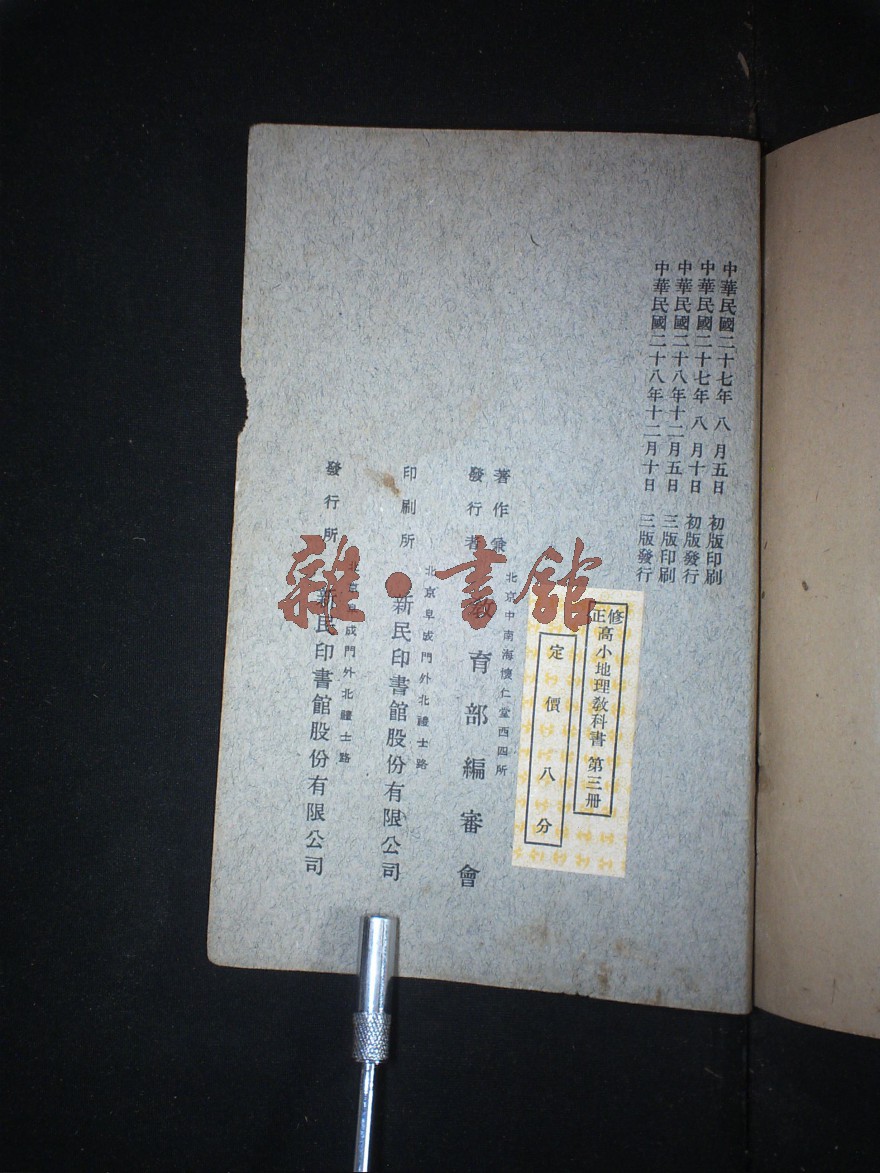 中華民國二十七年八月五日 初版印刷
中華民國二十七年八月十日 初版發行
中華民國二十八年十二月五日 三版印刷
中華民國二十八年十二月十日 三版發行
修正高小地理教科書 第三册
定價八分
著作兼
發行者
北京中南海懷仁堂西四所
教育部編審會
印刷所
北京阜成門外北禮士路
新民印書館股份有限公司
發行所
北京阜成門外北禮士路
新民印書館股份有限公司
雜·書館